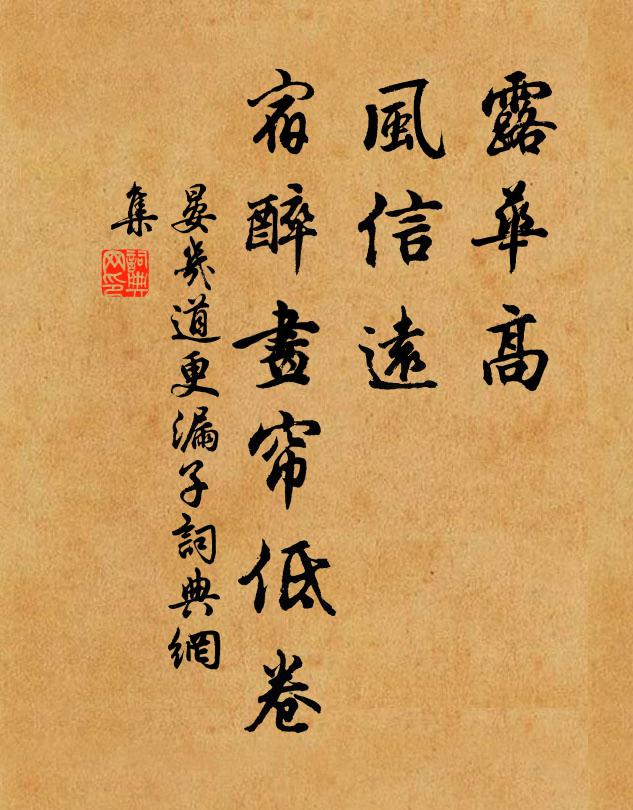 露華高
風信遠
宿醉畫帘低卷
晏幾道更漏子詞典網
集
詞典
网印